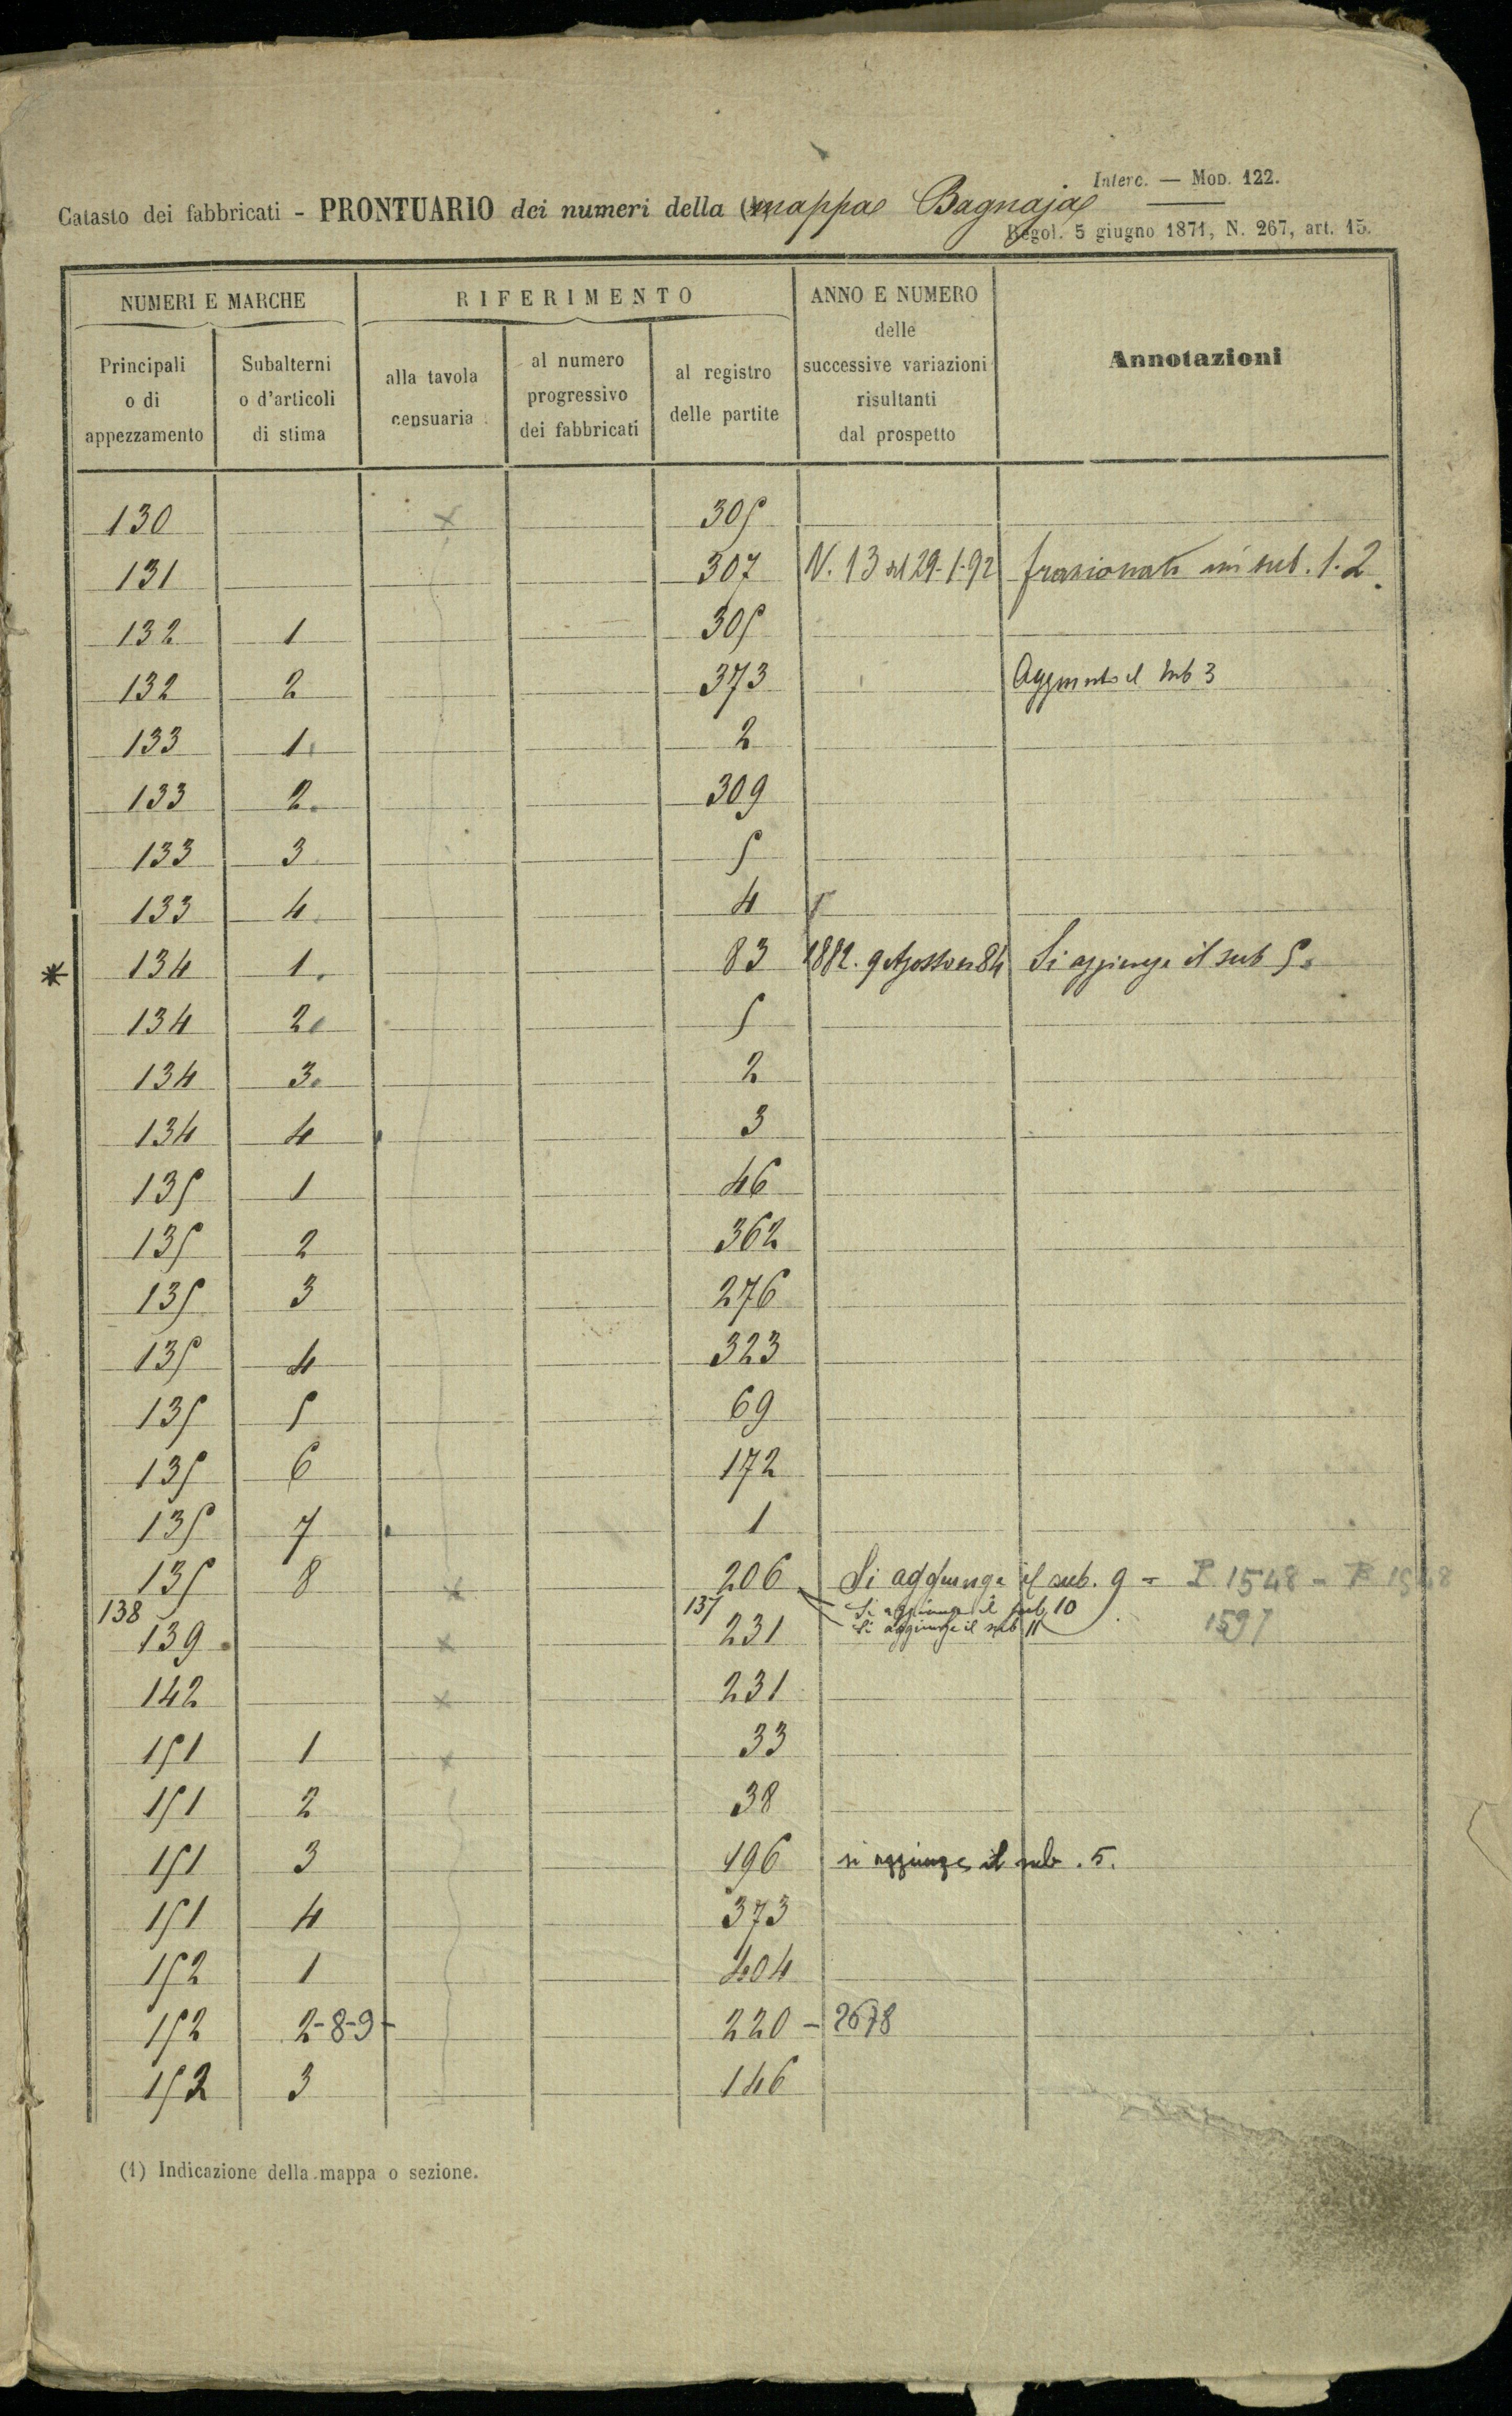 Interc. — Mod. 122.
Catasto dei fabbricati - PRONTUARIO dei numeri della mappa Bagnaja
Regol. 5 giugno 1871, N. 267, art. 15.
NUMERI E MARCHE
RIFERIMENTO
ANNO E NUMERO
delle
successive variazioni
risultanti
dal prospetto
Annotazioni
Principali
o di
appezzamento
Subalterni
o d'articoli
di stima
alla tavola
censuaria
al numero
progressivo
dei fabbricati
al registro
delle partite
130 × 305
131 307 N. 13 del 29-1-92 frazionato in sub. 1.2.
132 1 305
132 2 373 il sub 3
133 1. 2
133 2. 309
133 3 5
133 4. 4
* 134 1. 83 1882. 9 Agosto n 84 Si aggiunge il sub 5.
134 2 5
134 3. 2
134 4 3
135 1 46
135 2 362
135 3 276
135 4 323
135 5 69
135 6 172
135 7 1
135 8 × 206 Si aggiunge il sub. 9 = 1548 -
Si aggiunge il sub 10
138 137
139 × 231 Si aggiunge il sub 11
142 × 231
151 1 × 33
151 2 38
151 3 196 si aggiunge il sub. 5.
151 4 373
152 1 404
152 2-8-9- 220 - 2678
152 3 146
(1) Indicazione della mappa o sezione.